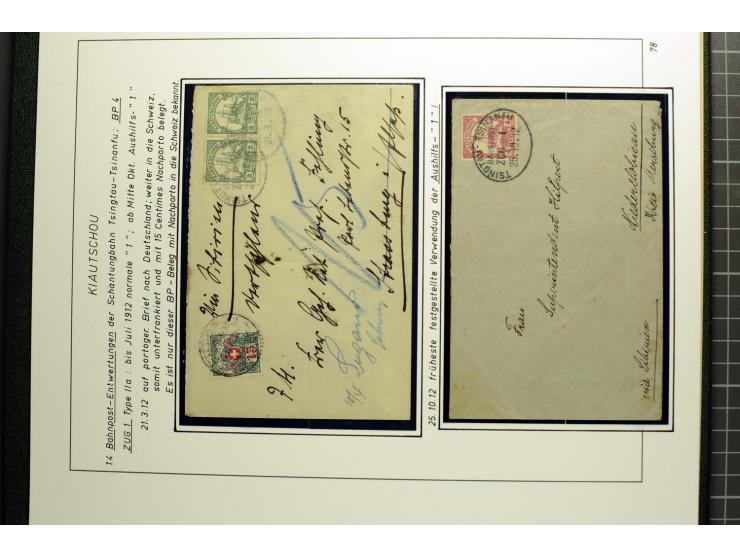 78
KIAUTSCHOU
1.4 Bahnpost-Entwertungen der Schantungbahn Tsingtau-Tsinanfu: BP 4
ZUG 1 Type IIa: bis Juli 1912 normale "1"; ab Mitte Okt. Aushilfs-"1"
21.3.12 auf portoger. Brief nach Deutschland; weiter in die Schweiz,
somit unterfrankiert und mit 15 Centimes Nachporto belegt.
Es ist nur dieser BP-Beleg mit Nachporto in die Schweiz bekannt.
Via Sibirien
Deutschland
Lugano
15
25.10.12 früheste festgestellte Verwendung der Aushilfs-"1"!
TSINGTAU - TSINANFU
BAHNPOST
ZUG 1
25.10.12
Frau
Superintendent Halpert
Kreis Merseburg
via Sibirien